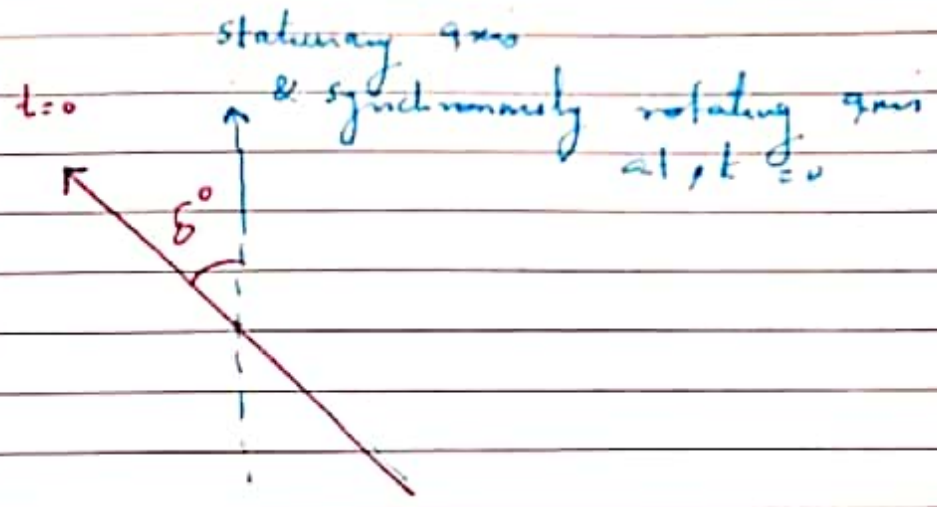 stationary axis
t=0 & synchronously rotating axis
at, t = 0
δ°